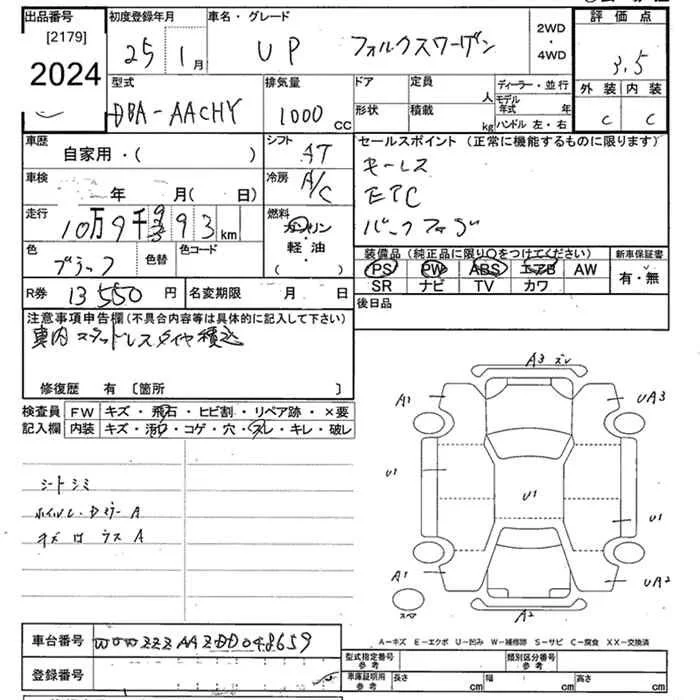 出品番号
[2179]
2024
初度登録年月
25 1月
車名・グレード
UP フォルクスワーゲン
2WD
・
4WD
評価点
3.5
外装 内装
C C
型式
DBA-AACHY
排気量
1000 CC
ドア
形状
定員 人
積載 kg
ディーラー・並行
モデル年式 年
ハンドル 左・右
車歴
自家用・( )
シフト
AT
車検
年 月( 日)
冷房
A/C
走行
km
燃料
ガソリン
軽・油
( )
色
ブラック
色替
色コード
セールスポイント (正常に機能するものに限ります)
キーレス
ETC
装備品 (純正品に限り○をつけてください)
PS PW ABS エアB AW
SR ナビ TV カワ
新車保証書
有・無
R券 13550 円
名変期限 月 日
後日品
注意事項申告欄(不具合内容等は具体的に記入して下さい)
車内 スタッドレスタイヤ積込
修復歴 有 〔箇所 〕
検査員
記入欄
FW キズ・飛石・ヒビ割・リペア跡・×要
内装 キズ・汚れ・コゲ・穴・スレ・キレ・破レ
シートシミ
A3 スレ
A1
UA3
U1
U1
U1
A1
UA2
A2
スペア
A-キズ E-エクボ U-凹み W-補修跡 S-サビ C-腐食 XX-交換済
車台番号
WVWZZZAAZDD048659
登録番号
型式指定番号
参考
類別区分番号
参考
車庫証明用
参考
長さ cm
幅 cm
高さ cm